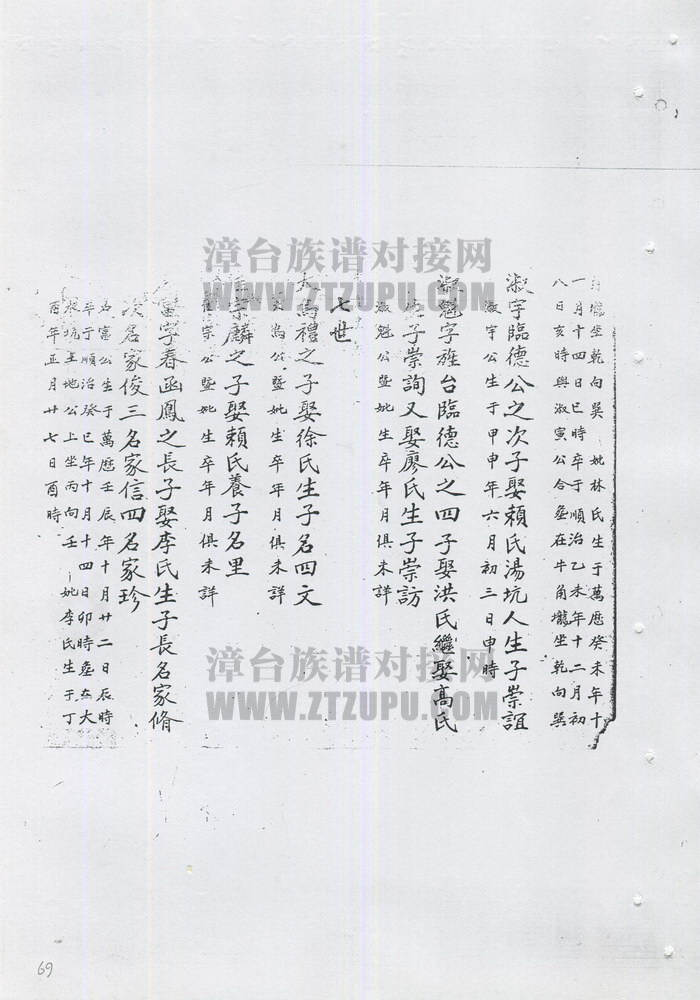 壠坐乾向巽 妣林氏生于萬歷癸未年十
一月十四日巳時卒于順治乙未年十二月初
八日亥時與淑寅公合塟在牛角壠坐乾向巽
淑宇臨德公之次子娶賴氏湯坑人生子崇誼
淑宇公生于甲申年六月初三日申時
淑魁字旌台臨德公之四子娶洪氏繼娶高氏
子崇詢又娶廖氏生子崇訪
淑魁公暨妣生卒年月俱未詳
七世
為禮之子娶徐氏生子名四文
為公暨妣生卒年月俱未詳
宗麟之子娶賴氏養子名里
宗公暨妣生卒年月俱未詳
字春函鳳之長子娶李氏生子長名家脩
次名家俊三名家信四名家珍
公生于萬歷壬辰年十月廿二日辰時
卒于順治癸巳年十月十四日卯時塟在大
坑王地公上坐丙向壬 妣李氏生于丁
酉年正月廿七日酉時
漳台族谱对接网
WWW.ZTZUPU.COM
漳台族谱对接网
WWW.ZTZUPU.COM
69